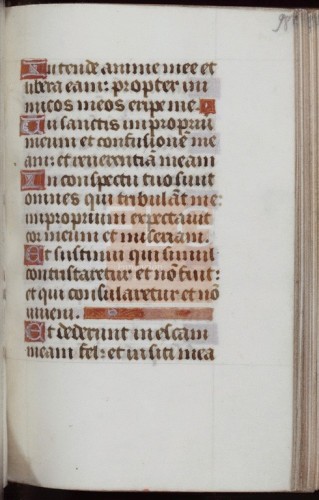 98
Intende anime mee et
libera eam: propter ini
micos meos eripe me.
Tu scis improperiu
meum et confusionē me
am: et reuerentiā meam
In conspectu tuo sunt
omnes qui tribulāt me:
improperium expectauit
cor meum et miseriam.
Et sustinui qui simul
contristaretur et nō fuit:
et qui consularetur et nō
inueni.
Et dederunt in escam
meam fel: et in siti mea